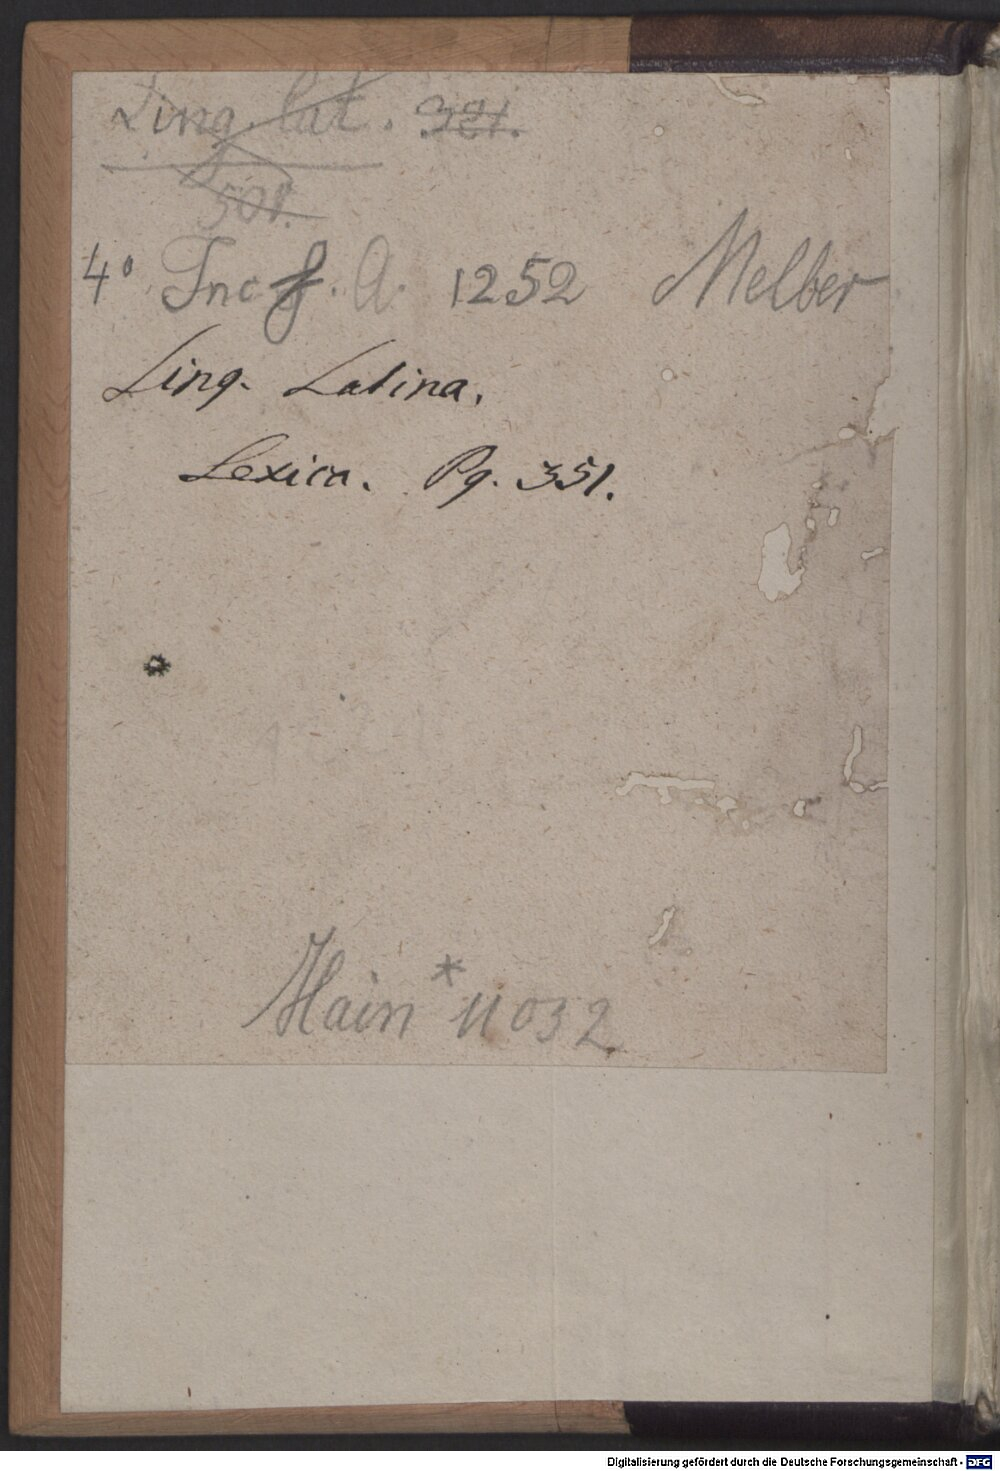 Ling. lat. 321.
501.
4° Inc. s. a. 1252 Melber
Ling. Latina.
Lexica. Pg. 351.
Hain * 11032
Digitalisierung gefördert durch die Deutsche Forschungsgemeinschaft - DFG